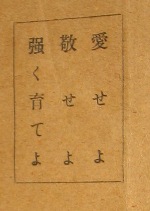 愛せよ
敬せよ
强く育てよ